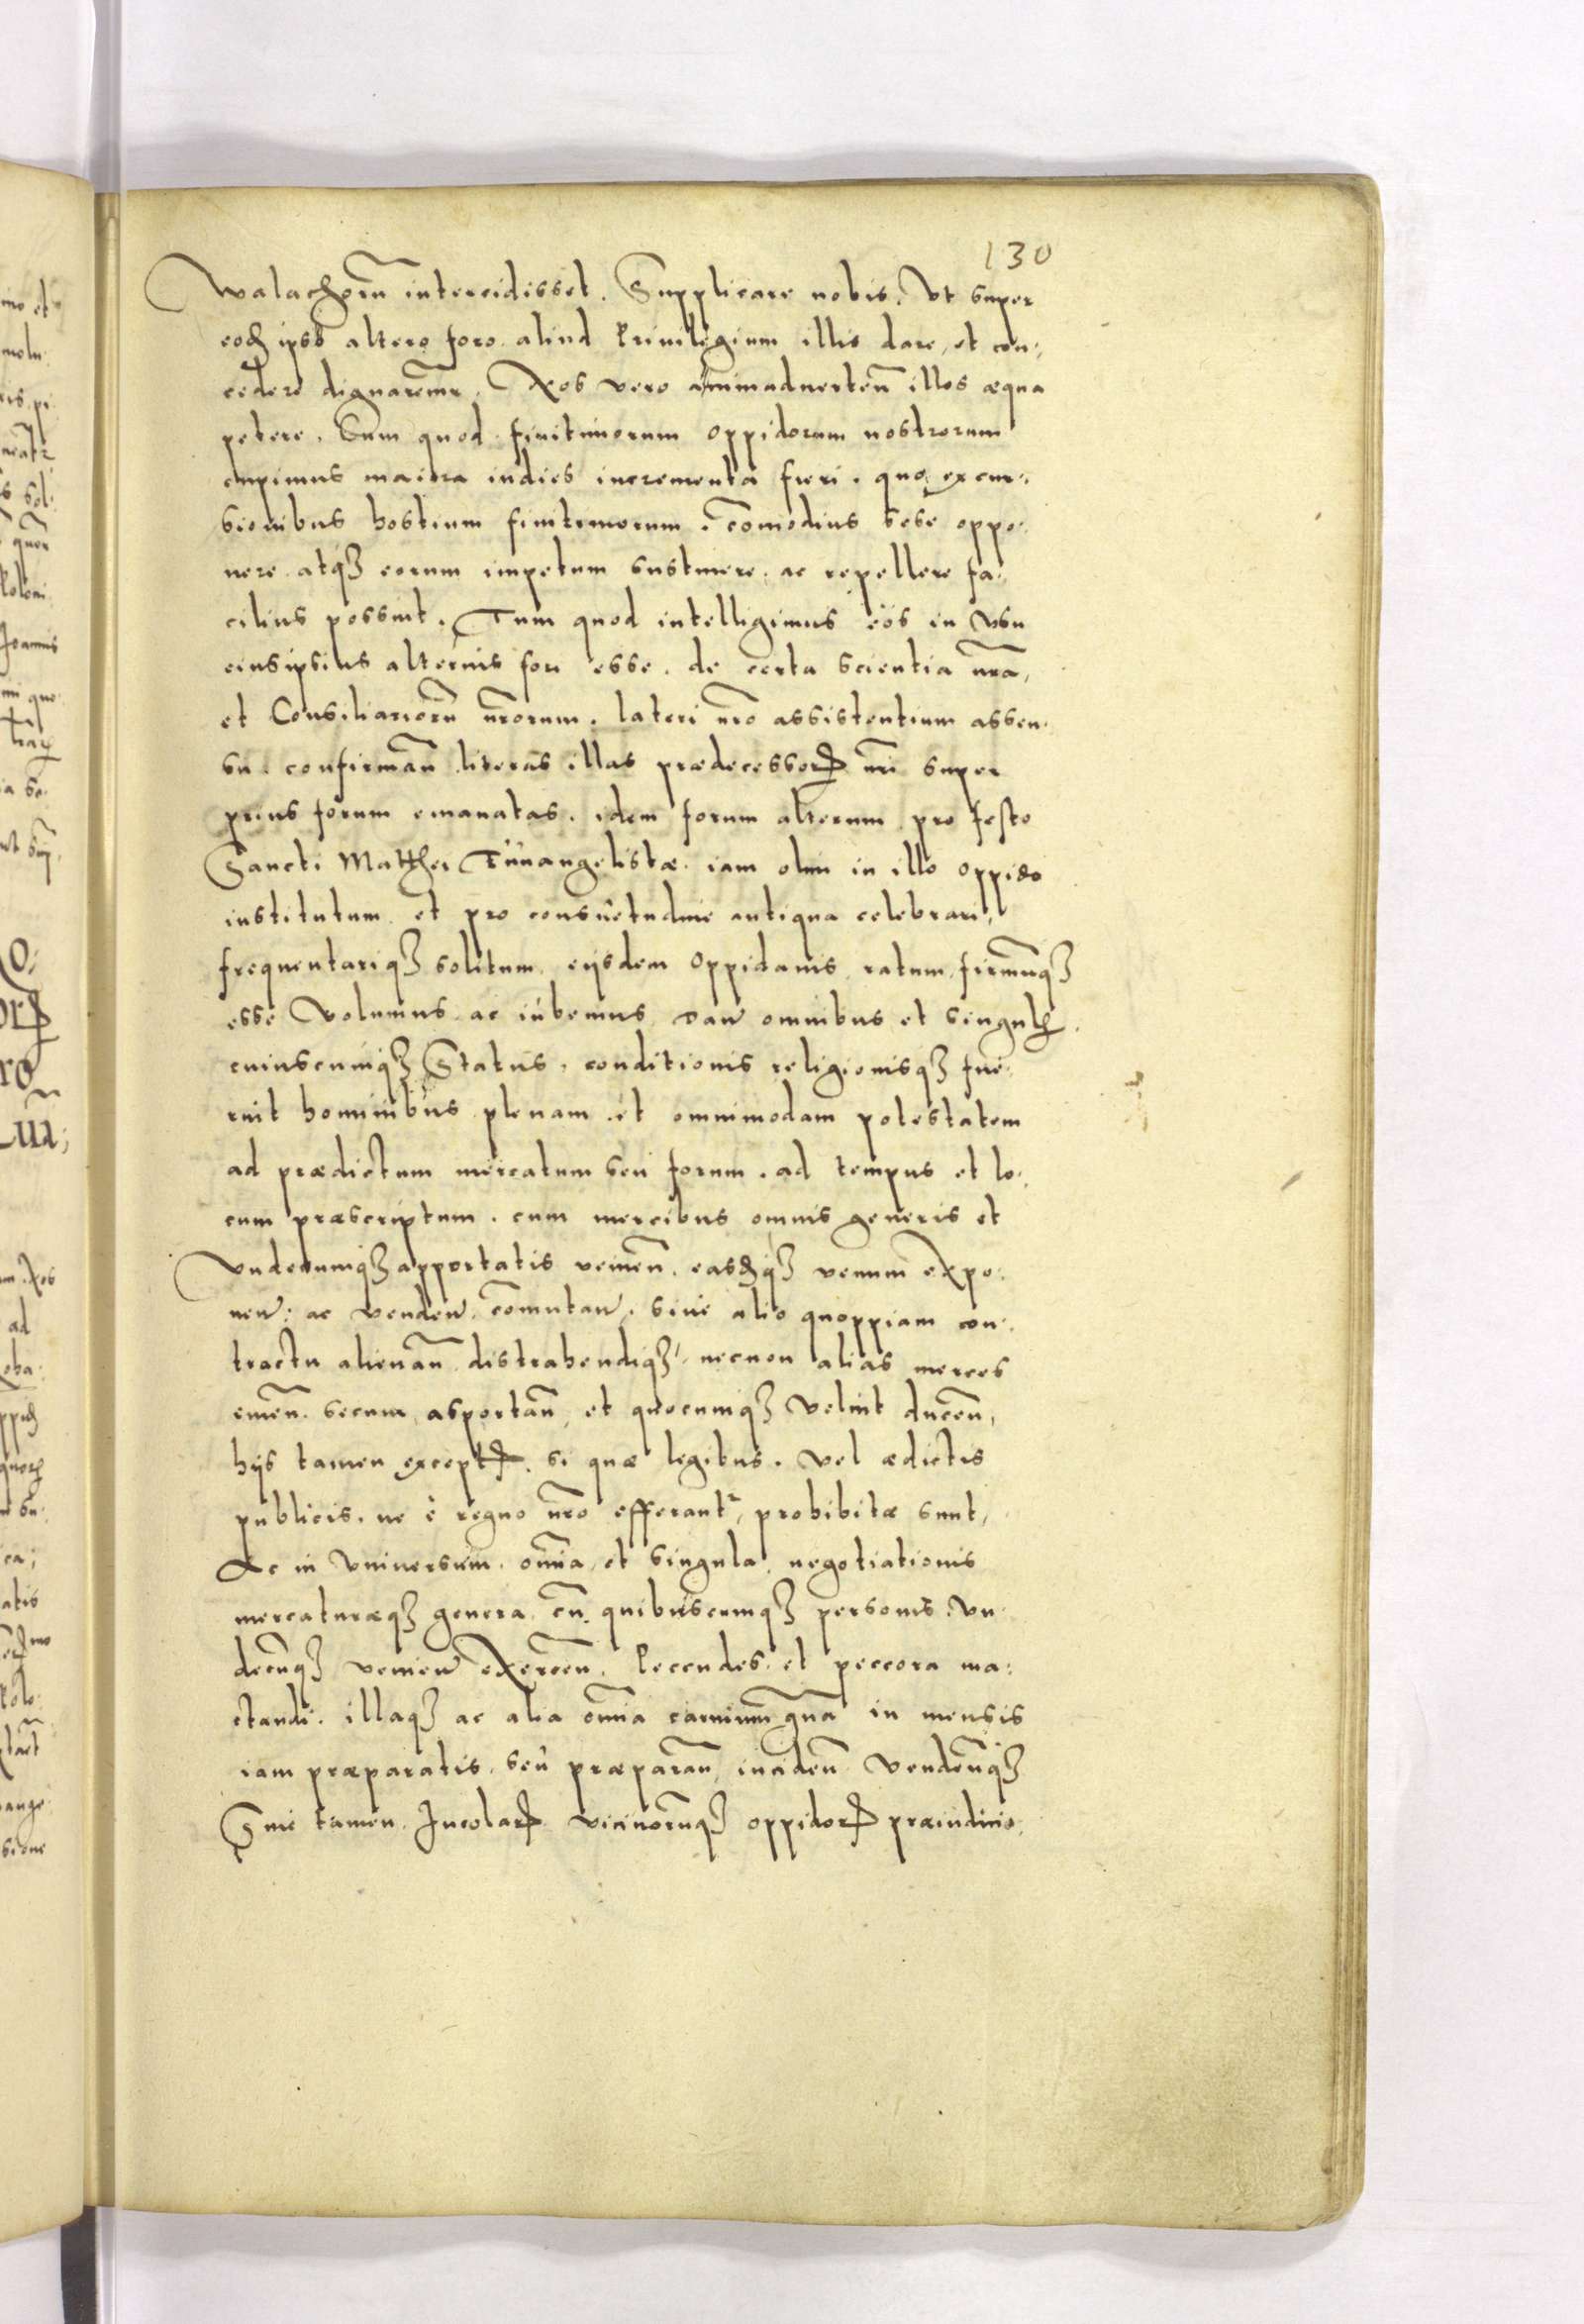 130
Walachorū intercidisset. Supplicare nobis. Vt super
eodē ipso altero foro aliud Priuilegium illis dare, et con,
cedere dignaremr. Nos vero animaduerteñ illos æqua
petere. Cum quod finitimorum oppidorum nostrorum
cupimus maiora indies incrementa fieri. quo excur,
sionibus hostium finitimorum. cõmodius sese oppo,
nere atqꝫ eorum impetum sustinere. ac repellere fa,
cilius possint. Tum quod intelligimus eos in vsu
eiusipsius alterius fori esse. de certa scientia nrã,
et Consiliariorũ nrõrum. lateri nrõ assistentium assen,
su. confirmañ literas illas prædecessorꝝ nrĩ super
prius forum emanatas. idem forum alterum pro festo
Sancti Matthei Euuangelistæ. iam olim in illo oppido
institutum et pro consuetudine antiqua celebrari,
frequentariqꝫ solitum. eijsdem Oppidanis ratum firmũqꝫ
esse volumus ac iubemus dañ omnibus et singulis
cuiuscunqꝫ Status, conditionis religionisqꝫ fue,
rint hominibus plenam et omnimodam potestatem
ad prædictum mercatum seu forum. ad tempus et lo,
cum præscriptum. cum mercibus omnis generis et
vndecumqꝫ apportatis venieñ. easdẽqꝫ venum expo,
neñ: ac vendeñ. cõmutañ. siue alio quoppiam con,
tractu alienañ distrahendiqꝫ, necnon alias merces
emeñ. secum asportañ, et quocumqꝫ velint duceñ,
hijs tamen exceptꝭ. si quæ legibus. vel ædictis
publicis. ne è regno nrõ efferantr, prohibitæ sunt,
Ac in vniuersum. omia et singula negotiationis
mercaturæqꝫ genera. cũ quibuscumqꝫ personis. vn,
decũqꝫ venieñ exerceñ. Peccudes et peccora ma,
ctandi. illaqꝫ ac alia omia carnium gña in mensis
iam præparatis. seu præparañ incideñ vendeñqꝫ
Sine tamen Incolarꝝ vicinorũqꝫ oppidorꝝ præiudicio,